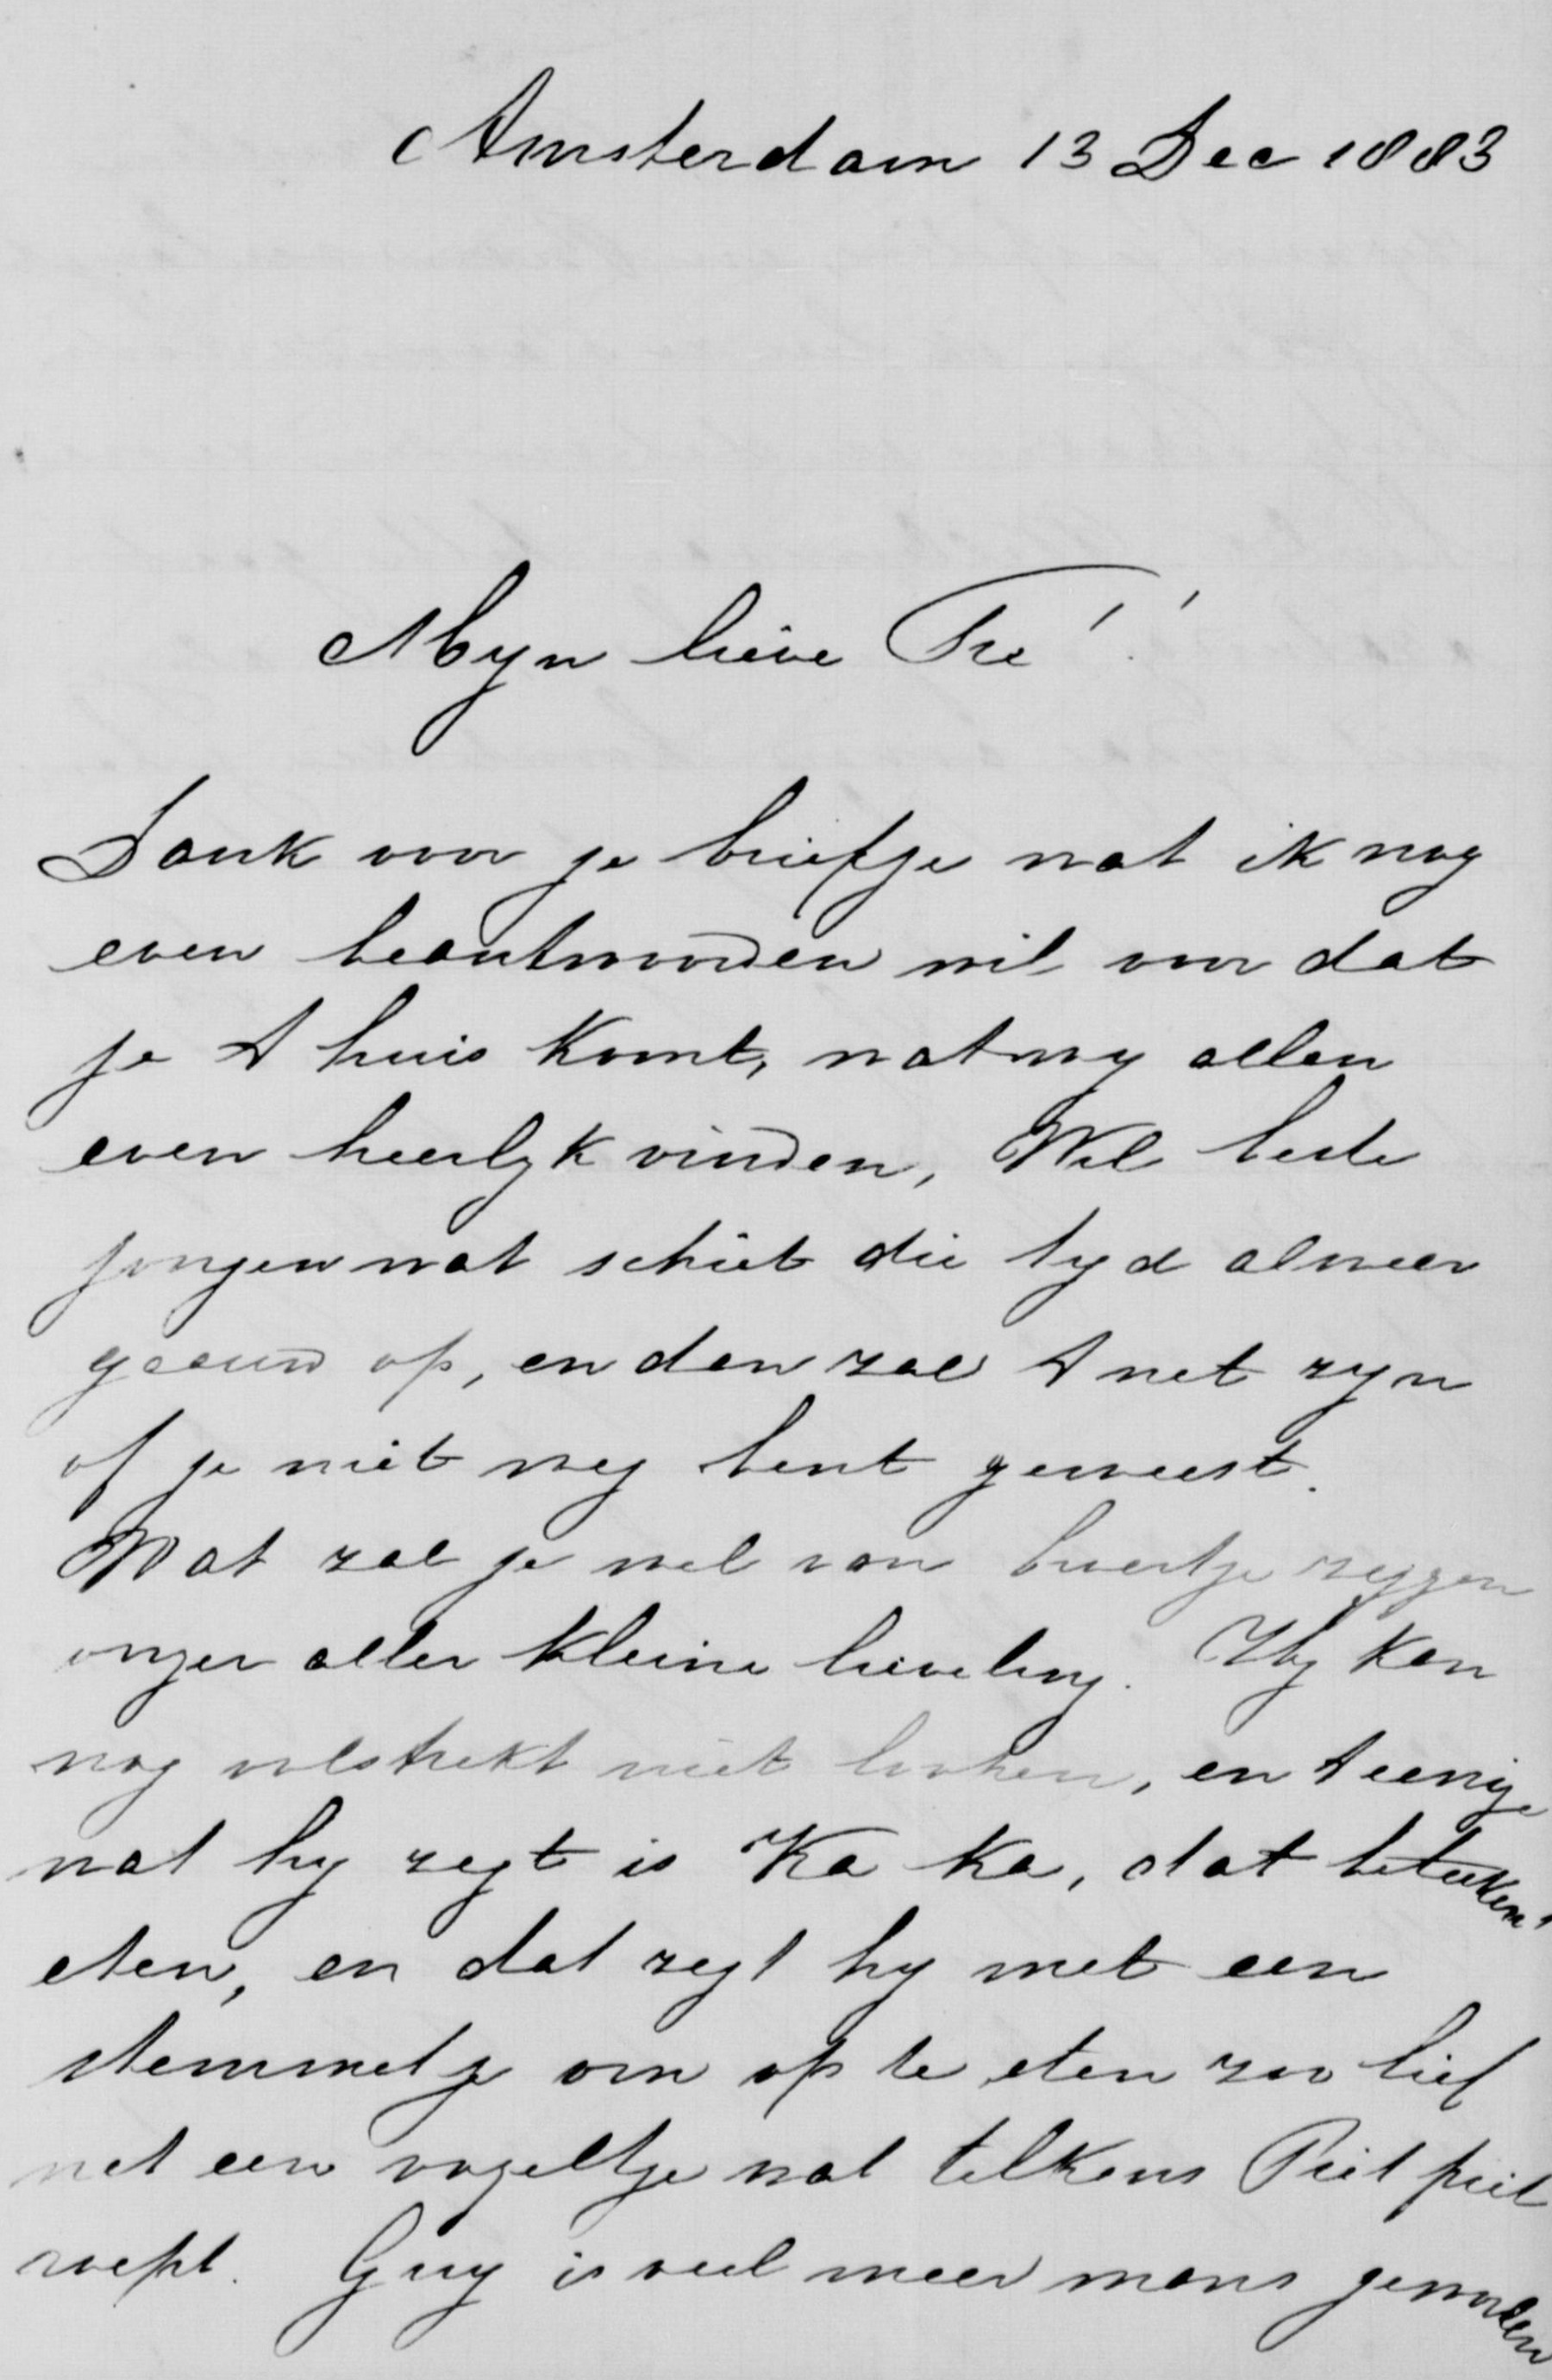 Amsterdam 13 Dec 1883
Myn lieve Pre'!
Dank voor je briefje wat ik nog
even beantwoorden wil voor dat
je t huis komt, wat wy allen
even heerlyk vinden, Wel beste
jongen wat schiet die tyd alweer
gaauw op, en dan zal t net zyn
of je niet weg bent geweest.
Wat zal je wel van broertje zeggen
onzer aller kleine lieveling. Hy kan
nog volstrekt niet loopen, en t eenige
wat hy zegt is Ka Ka, dat beteekent
eten, en dat zegt hy met een
stemmetje om op te eten zoo lief
net een vogeltje wat telkens Piet piet
roept. Guy is veel meer mans geworden